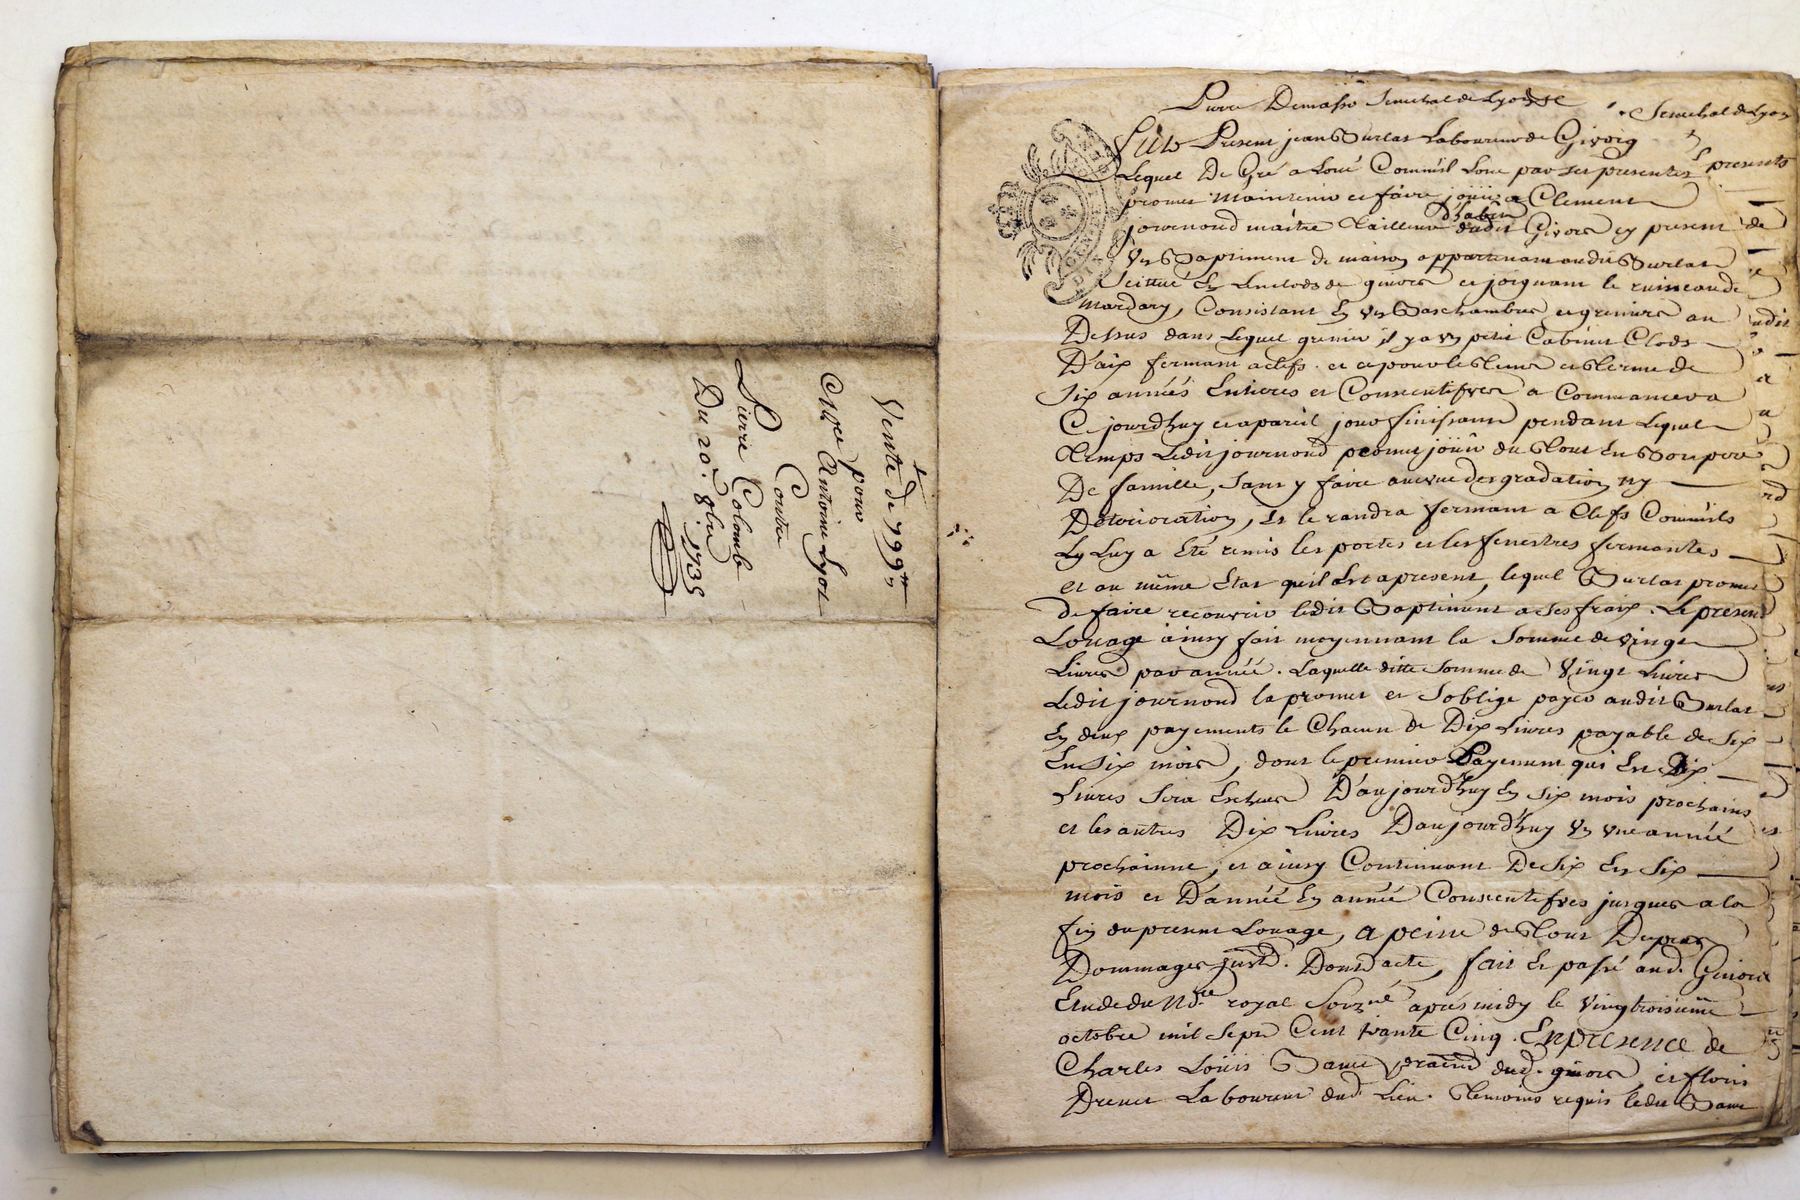 Vente de 799
pour
Antoine Lyot
Contre
Pierre Colomb
Du 20e 8bre 1735
Senechal de Lyon
Senechal de Lyon
Fut Present jean Burlat Laboureur de Givors
Lequel De Gré a Loué Comm'il Loue par ses presentes
promet maintenir et faire jouir a Clement
journoud maitre Tailleur d'habit dudit Givors cy present
Un Baptiment de maison appartenant audit Burlat
Scittué En Enclods de givors et joignant le ruisseau de
mardary, Consistant En Un Bas chambre et greniers au
Dessus dans Lequel grenier il y a Un petit Cabinet Clods
D'aix fermant a clefs. et ce pour le Tems et Terme de
Six années Entieres et Consecutifves a Commancer a
Ce jourd'huy et a pareil jour finissant pendant Lequel
Temps Ledit journoud promet jouir du Tout En Bon pere
De famille, Sans y faire aucune desgradation ny
Deterioration, Et le randra fermant a Clefs Comm'ils
Ly Luy a Eté remis les portes et les fenestres fermantes
et au même Etat qu'il Est a present, lequel Burlat promet
de faire recouvrir ledit Baptiment a ses fraix. Le present
Louage ainsy fait moyennant la Somme de Vingt
Livres par année. Laquelle ditte Somme de Vingt Livres
Ledit journoud la promet et S'oblige payer audit Burlat
En deux payements le Chacun de Dix Livres payable de Six
En Six mois, dont le premier Payement qui Est Dix
Livres Sera Escheu D'aujourd'huy En Six mois prochains
et les autres Dix Livres D'aujourd'huy En une année
prochainne, et ainsy Continuant De Six En Six
mois et D'année En année Consecutifves jusques a la
fin du present Louage, a peine de Tout Depens
Dommages. Dont acte, fait et passé aud. Givors
Etude du No.re royal Souz.né apres midy le Vingtroisieme
octobre mil Sept Cent trante Cinq. En presence de
Charles Louis dud. givors, et
Dreuet Laboureur dud. Lieu. Temoins requis ledit